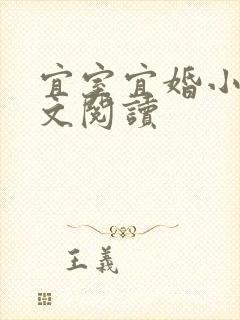 宜室宜婚小
文閱讀
王義